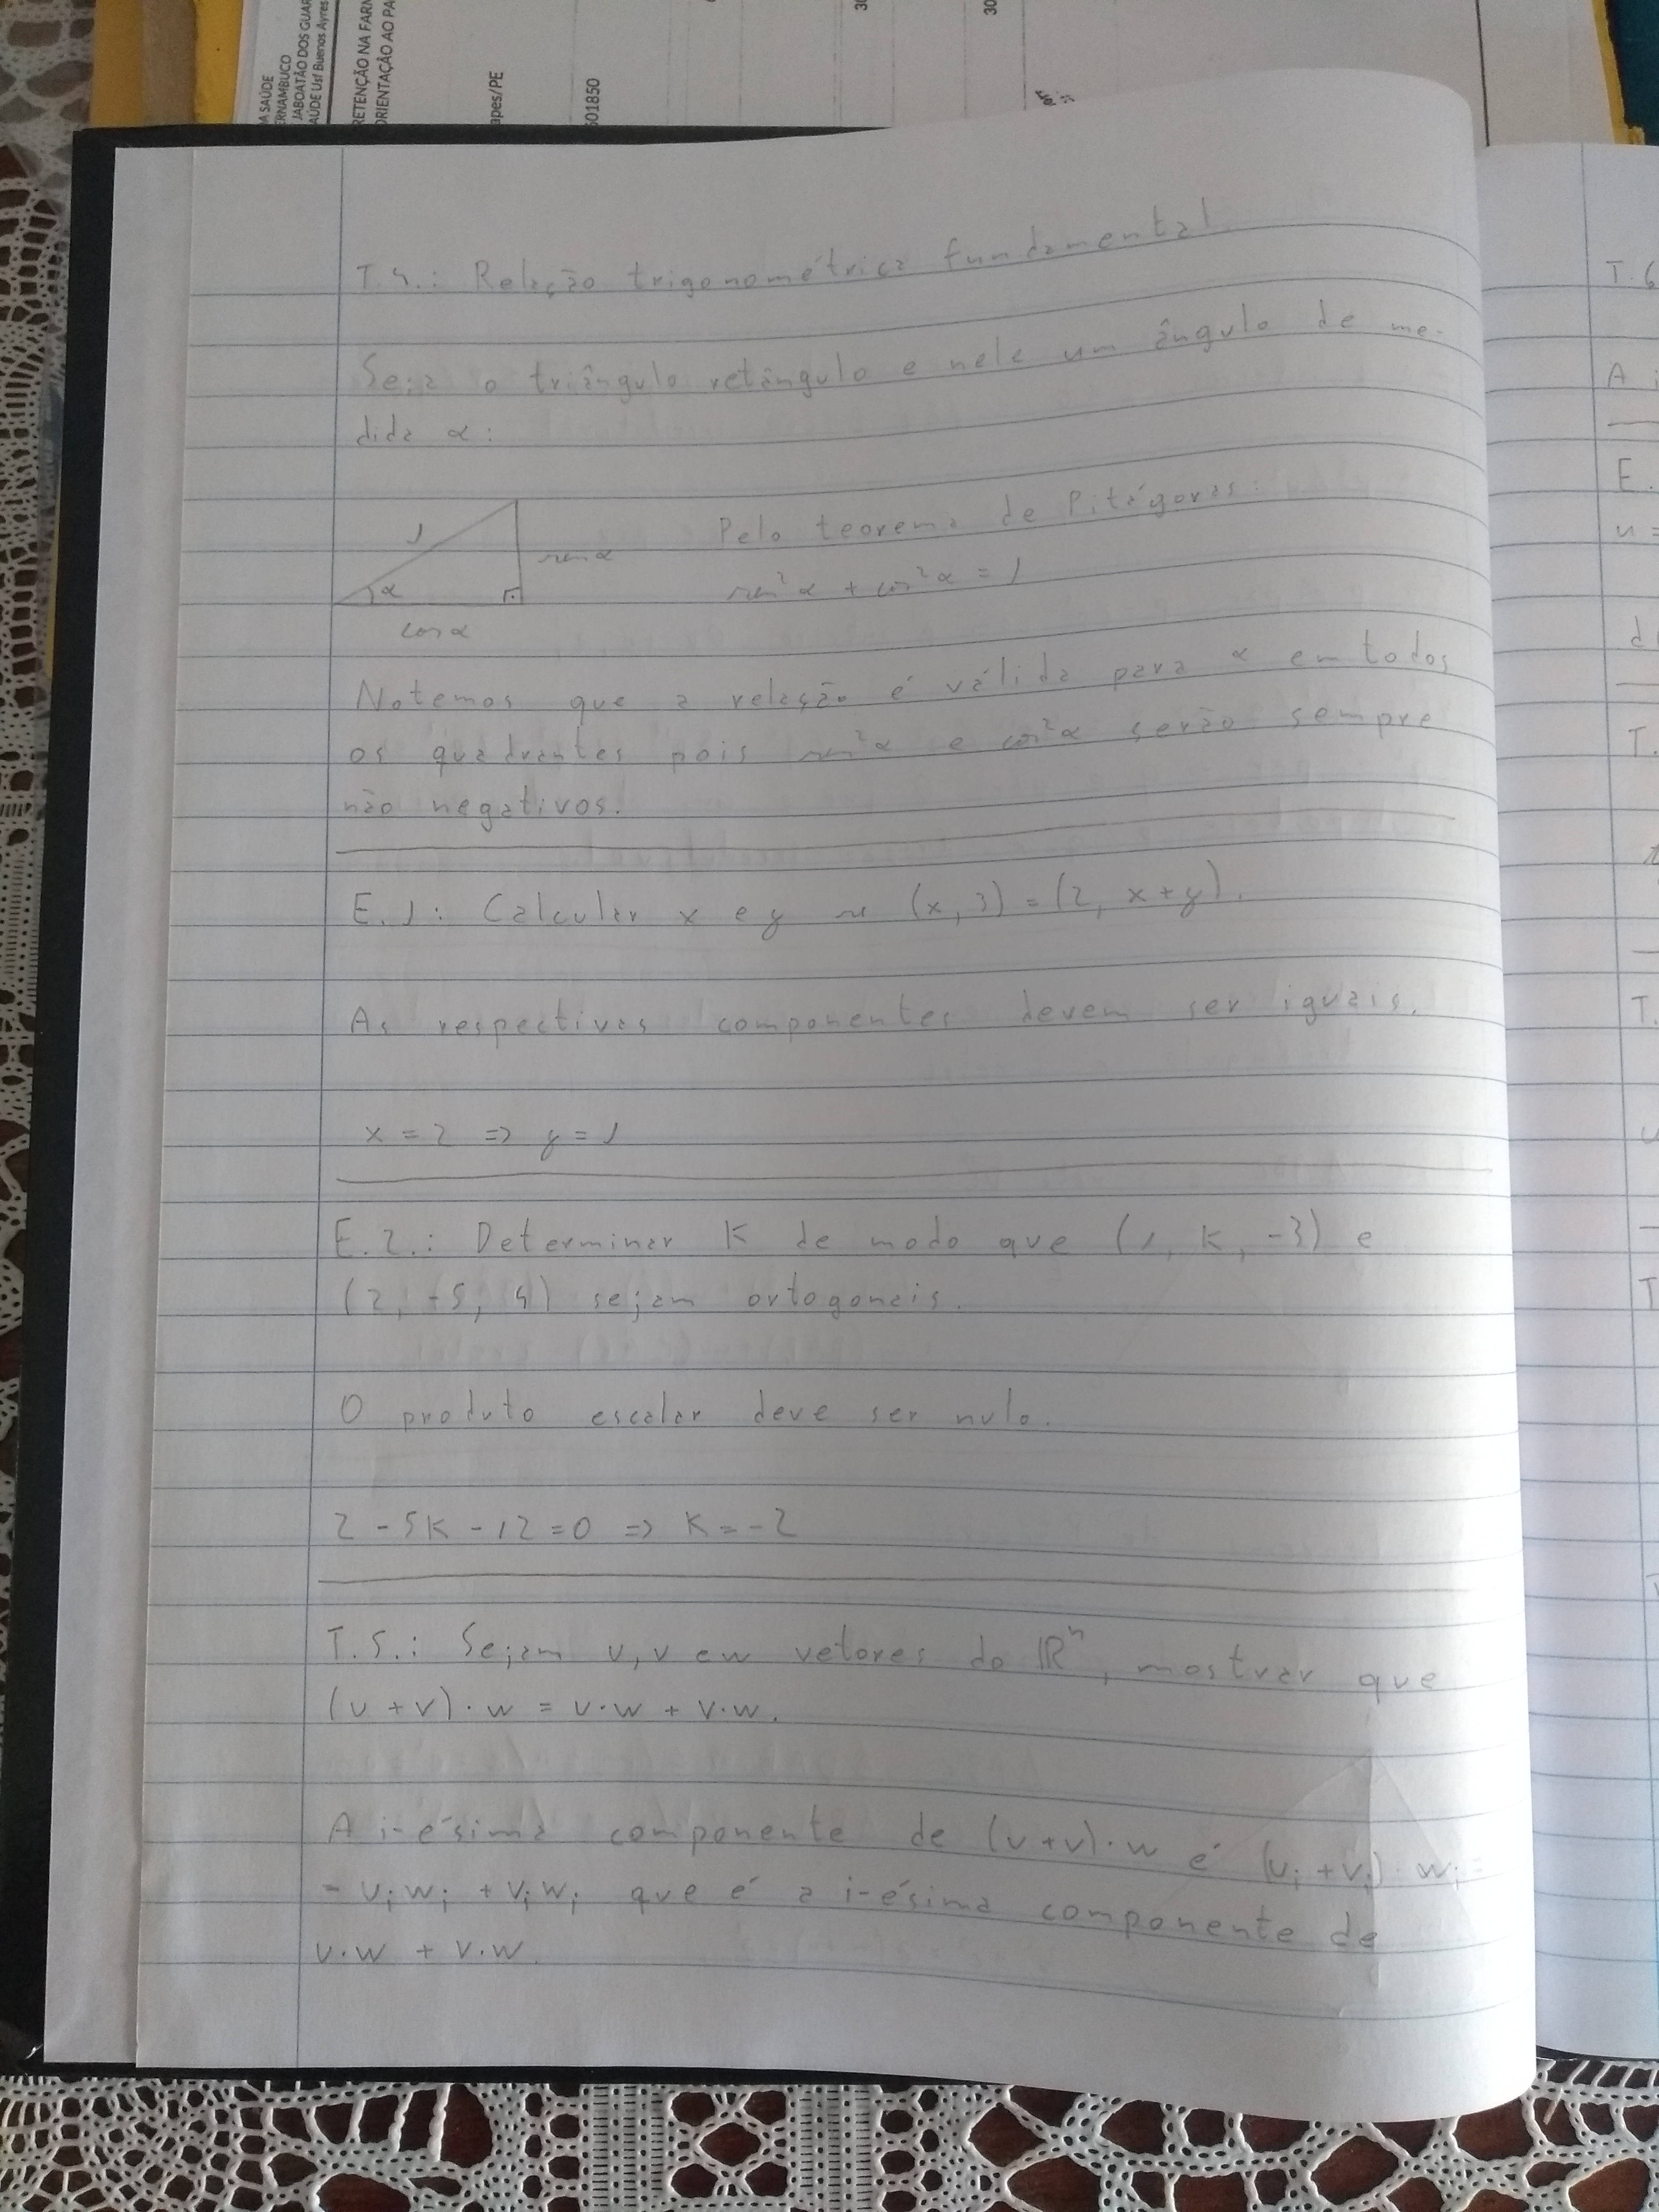 DA SAÚDE
ERNAMBUCO
JABOATÃO DOS GUAR
AÚDE Usf Buenos Ayres
RETENÇÃO NA FARM
ORIENTAÇÃO AO PA
apes/PE
601850
30
30
T.4.: Relação trigonométrica fundamental.
Seja o triângulo retângulo e nele um ângulo de me-
dida α:
1
sen α
α
cos α
Pelo teorema de Pitágoras:
sen²α + cos²α = 1
Notemos que a relação é válida para α em todos
os quadrantes pois sen²α e cos²α serão sempre
não negativos.
E.1: Calcular x e y se (x, 3) = (2, x+y).
As respectivas componentes devem ser iguais.
x = 2 => y = 1
E.2.: Determinar K de modo que (1, K, -3) e
(2, -5, 4) sejam ortogonais.
O produto escalar deve ser nulo.
2 - 5K - 12 = 0 => K = -2
T.5.: Sejam u, v e w vetores do ℝⁿ, mostrar que
(u + v)·w = u·w + v·w.
A i-ésima componente de (u+v)·w é (uᵢ + vᵢ)·wᵢ =
= uᵢwᵢ + vᵢwᵢ que é a i-ésima componente de
u·w + v·w.
T.6
A i
E.
u =
T.
T.
T